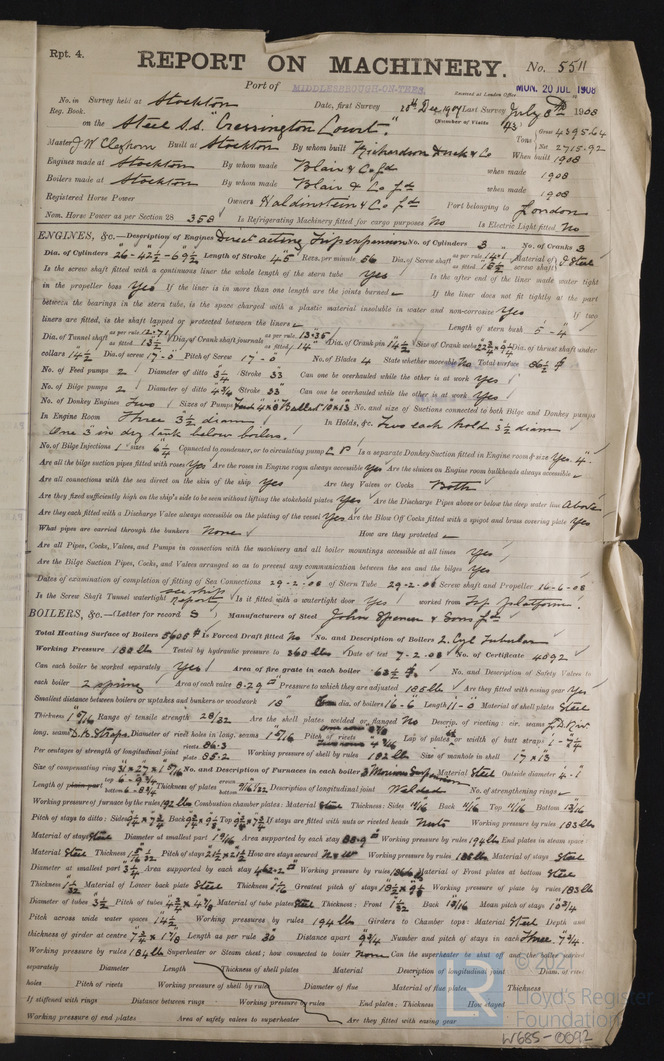 Rpt. 4.
REPORT ON MACHINERY. No. 5511
Port of MIDDLESBROUGH-ON-TEES. Received at London Office MON. 20 JUL 1908
No. in Survey held at Stockton Date, first Survey 18th Dec 1907 Last Survey July 8th 1908
Reg. Book. (Number of Visits 43)
on the Steel S.S. "Cressington Court". Tons Gross 4395.64 Net 2715.92
Master J W Cleghorn Built at Stockton By whom built Richardson Duck & Co When built 1908
Engines made at Stockton By whom made Blair & Co Ld when made 1908
Boilers made at Stockton By whom made Blair & Co Ld when made 1908
Registered Horse Power Owners Haldinstein & Co Ld Port belonging to London
Nom. Horse Power as per Section 28 358 Is Refrigerating Machinery fitted for cargo purposes No Is Electric Light fitted No
ENGINES, &c.—Description of Engines Direct acting Trip expansion No. of Cylinders 3 No. of Cranks 3
Dia. of Cylinders 26-42½-69½ Length of Stroke 45" Revs. per minute 56 Dia. of Screw shaft as per rule 14.1 Material of screw shaft
Is the screw shaft fitted with a continuous liner the whole length of the stern tube Yes Is the after end of the liner made water tight
in the propeller boss Yes If the liner is in more than one length are the joints burned If the liner does not fit tightly at the part
between the bearings in the stern tube, is the space charged with a plastic material insoluble in water and non-corrosive Yes If two
liners are fitted, is the shaft lapped or protected between the liners Length of stern bush 5-4"
Dia. of Tunnel shaft as per rule 12.71 as fitted 13½ Dia. of Crank shaft journals as per rule 13.35 as fitted 14" Dia. of Crank pin 14½ Size of Crank webs Dia. of thrust shaft under
collars 14½ Dia. of screw 17-0 Pitch of Screw 17-0 No. of Blades 4 State whether moveable No Total surface 86½
No. of Feed pumps 2 Diameter of ditto 3¼ Stroke 33 Can one be overhauled while the other is at work Yes
No. of Bilge pumps 2 Diameter of ditto 4¾ Stroke 33 Can one be overhauled while the other is at work Yes
No. of Donkey Engines Two Sizes of Pumps Feed 4x8 Ballast 10x13 No. and size of Suctions connected to both Bilge and Donkey pumps
In Engine Room Three 3½ diam In Holds, &c. Two each hold 3½ diam
One 3" in dry tank below boilers.
No. of Bilge Injections 1 sizes 6¼ Connected to condenser, or to circulating pump C P Is a separate Donkey Suction fitted in Engine room & size Yes. 4"
Are all the bilge suction pipes fitted with roses Yes Are the roses in Engine room always accessible Yes Are the sluices on Engine room bulkheads always accessible
Are all connections with the sea direct on the skin of the ship Yes Are they Valves or Cocks Both
Are they fixed sufficiently high on the ship's side to be seen without lifting the stokehold plates Yes Are the Discharge Pipes above or below the deep water line Above
Are they each fitted with a Discharge Valve always accessible on the plating of the vessel Yes Are the Blow Off Cocks fitted with a spigot and brass covering plate Yes
What pipes are carried through the bunkers None How are they protected
Are all Pipes, Cocks, Valves, and Pumps in connection with the machinery and all boiler mountings accessible at all times Yes
Are the Bilge Suction Pipes, Cocks, and Valves arranged so as to prevent any communication between the sea and the bilges Yes
Dates of examination of completion of fitting of Sea Connections 29-2-08 of Stern Tube 29-2-08 Screw shaft and Propeller 16-6-08
Is the Screw Shaft Tunnel watertight see ship report Is it fitted with a watertight door Yes worked from Top platform.
BOILERS, &c.—(Letter for record S) Manufacturers of Steel John Spencer & Sons Ld
Total Heating Surface of Boilers 5605 Is Forced Draft fitted No No. and Description of Boilers 2. Cyl Tubular
Working Pressure 180 lbs Tested by hydraulic pressure to 360 lbs Date of test 7-2-08 No. of Certificate 4092
Can each boiler be worked separately Yes Area of fire grate in each boiler 63½ No. and Description of Safety Valves to
each boiler 2 spring Area of each valve 8.29 Pressure to which they are adjusted 185 lbs Are they fitted with easing gear Yes
Smallest distance between boilers or uptakes and bunkers or woodwork 18" dia. of boilers 16-6 Length 11-0 Material of shell plates Steel
Thickness 1 5/16 Range of tensile strength 28/32 Are the shell plates welded or flanged No Descrip. of riveting: cir. seams
long. seams D.B. Straps Diameter of rivet holes in long. seams 1 5/16 Pitch of rivets Lap of plates or width of butt straps
Per centages of strength of longitudinal joint rivets 86.3 plate 85.2 Working pressure of shell by rules 182 lbs Size of manhole in shell 17 x 13
Size of compensating ring No. and Description of Furnaces in each boiler 3 Morison Suspension Material Steel Outside diameter 4-1
Length of plain part top bottom Thickness of plates crown bottom Description of longitudinal joint Welded No. of strengthening rings
Working pressure of furnace by the rules 192 lbs Combustion chamber plates: Material Steel Thickness: Sides Back Top Bottom 13/16
Pitch of stays to ditto: Sides Back Top If stays are fitted with nuts or riveted heads Nuts Working pressure by rules 183 lbs
Material of stays Steel Diameter at smallest part Area supported by each stay Working pressure by rules 194 lbs End plates in steam space:
Material Steel Thickness Pitch of stays 21½ x 21½ How are stays secured Working pressure by rules 185 lbs Material of stays Steel
Diameter at smallest part Area supported by each stay 462.2 Working pressure by rules Material of Front plates at bottom Steel
Thickness Material of Lower back plate Steel Thickness Greatest pitch of stays Working pressure of plate by rules 183 lbs
Diameter of tubes 3½ Pitch of tubes Material of tube plates Steel Thickness: Front Back 13/16 Mean pitch of stays
Pitch across wide water spaces 14½ Working pressures by rules 194 lbs Girders to Chamber tops: Material Steel Depth and
thickness of girder at centre Length as per rule 30" Distance apart 9¾ Number and pitch of stays in each Three 7¾.
Working pressure by rules 184 lbs Superheater or Steam chest; how connected to boiler None Can the superheater be shut off and the boiler worked
separately Diameter Length Thickness of shell plates Material Description of longitudinal joint Diam. of rivet
holes Pitch of rivets Working pressure of shell by rules Diameter of flue Material of flue plates Thickness
If stiffened with rings Distance between rings Working pressure by rules End plates: Thickness How stayed
Working pressure of end plates Area of safety valves to superheater Are they fitted with easing gear
© 2021
LR
Lloyd's Register
Foundation
W685-0092